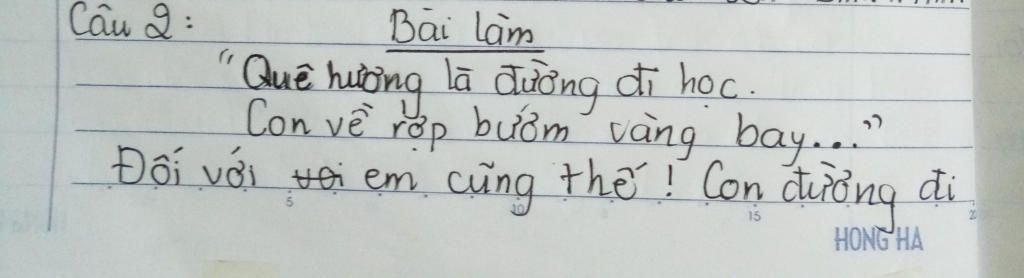 Câu 2:
Bài làm
"Quê hương là đường đi học.
Con về rợp bướm vàng bay..."
Đối với tôi em cũng thế! Con đường đi
5 10 15
HONG HA